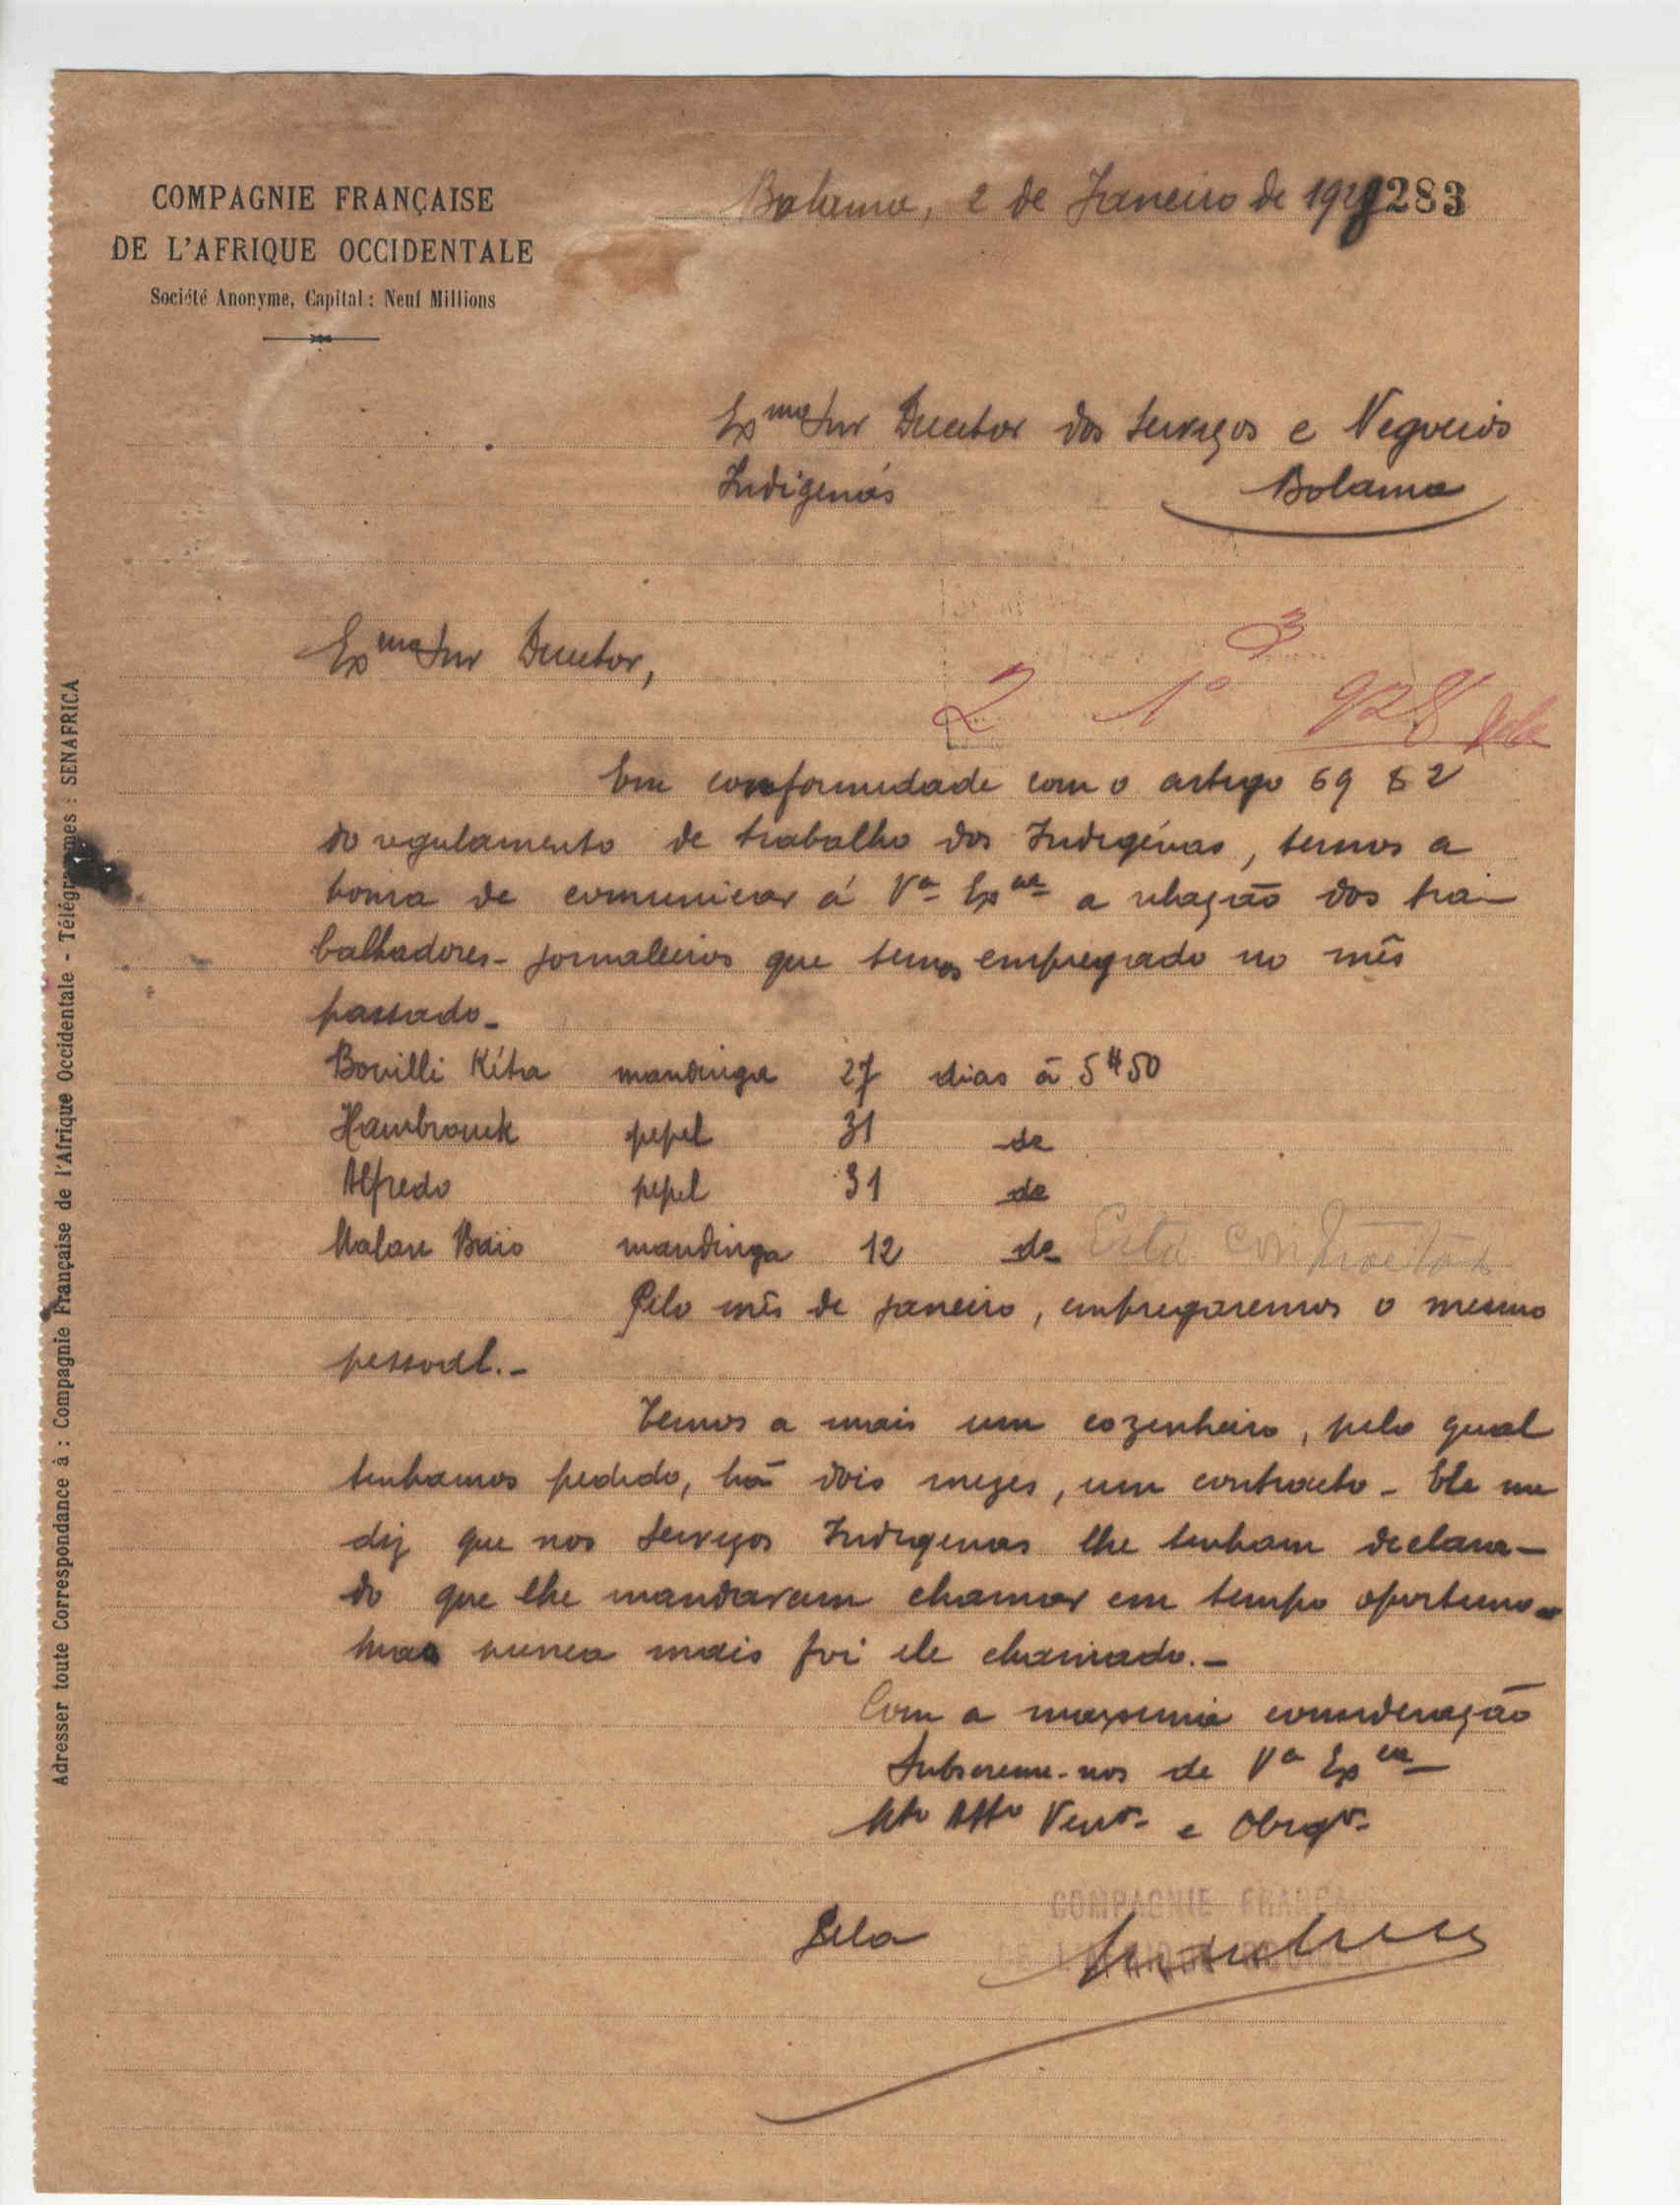 COMPAGNIE FRANÇAISE
DE L'AFRIQUE OCCIDENTALE
Société Anonyme, Capital : Neuf Millions
Bolama, 2 de Janeiro de 1928
283
Exmo Snr Director dos Serviços e Negocios
Indigenas Bolama
Exmo Snr Director,
3
2 1º 928
Em conformidade com o artigo 69 § 2
do regulamento de trabalho dos Indigénas, temos a
honra de comunicar á Vª Exª a relação dos tra-
balhadores-jornaleiros que temos empregado no mês
passado_
Bouilli Kéita mandinga 27 dias à 5$50
pepel 31 do
Alfredo pepel 31 do
Malan Baio mandinga 12 do Está contractado
Pelo mês de janeiro, empregaremos o mesmo
pessoal._
Temos a mais um cozenheiro, pelo qual
tenhamos pedido, há dois mezes, um contracto_ Ele me
diz que nos Serviços Indigenas lhe tenham declara-
do que lhe mandaram chamar em tempo oportuno_
Mas nunca mais foi ele chamado._
Com a maxima consideração
Subscreme-nos de Vª Exª
Mto Atto Venr. e Obrgo.
Pela
COMPAGNIE FRANÇAISE
DE L'AFRIQUE OCCIDENTALE
Adresser toute Correspondance à : Compagnie Française de l'Afrique Occidentale - Télégrammes : SENAFRICA